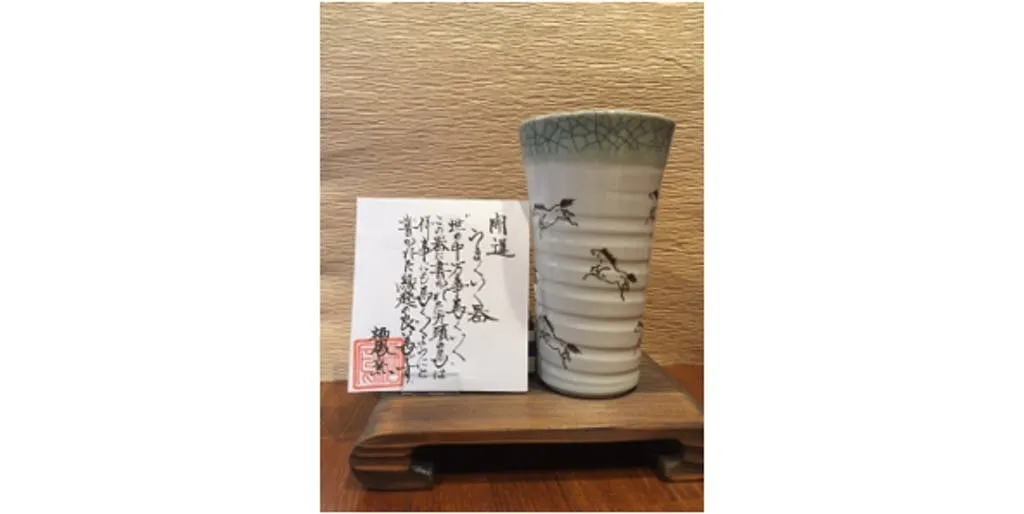 開運
うまくいく器
"世の中万事馬くいく"
この器に書かれた九頭の馬は
何事にも馬くいくようにと
書かれた縁起の良い馬です
窯